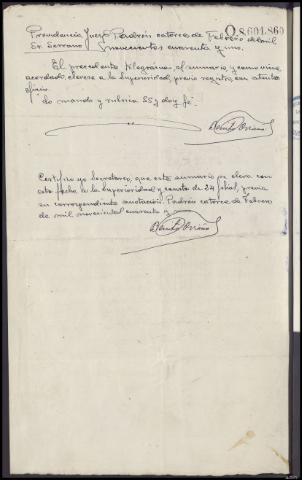 Providencia Juez Padrón catorce de Febrero de mil
Sr. Serrano novecientos cuarenta y uno.
O.8.601.860
El precedente telegrama, al sumario, y como viene
acordado, elevese a la Superioridad, previo registro, con atento
oficio.
Lo mando y rubrica SSª doy fe.
Certifico yo Secretario, que este sumario se eleva con
esta fecha a la Superioridad y consta de 34 folios, previa
su correspondiente anotación. Padrón catorce de Febrero
de mil novecientos cuarenta y